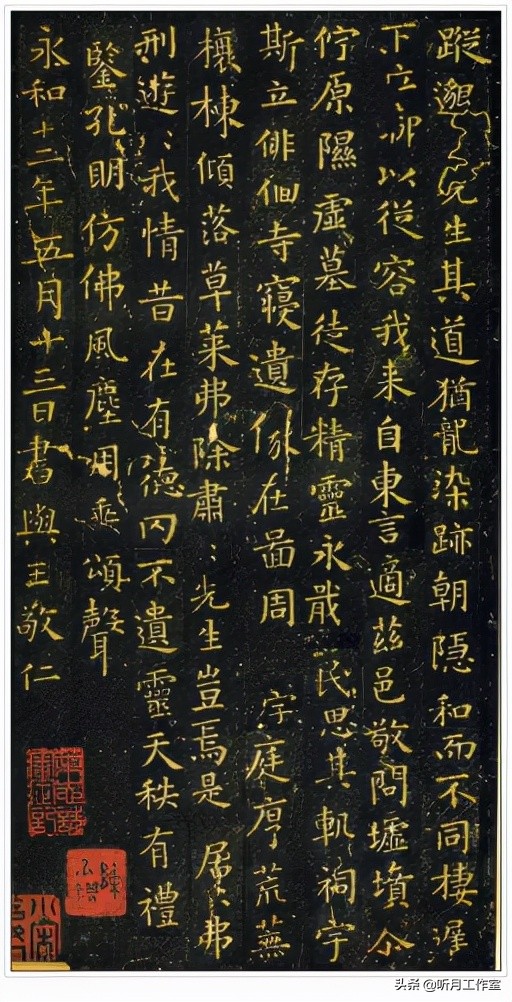 蹤邈〻先生其道猶龍染跡朝隐和而不同棲遲
下位聊以從容我来自東言適茲邑敬問墟墳企
佇原隰虚墓徒存精靈永戢民思其軌祠宇
斯立俳佪寺寢遺像在啚周 字庭序荒蕪
榱棟傾落草莱弗除肅〻先生豈焉是 居〻弗
刑遊〻我情昔在有德罔不遺靈天秩有禮
鑒孔明仿佛風塵用垂頌聲
永和十二年五月十三日書與王敬仁
头条 @听月工作室